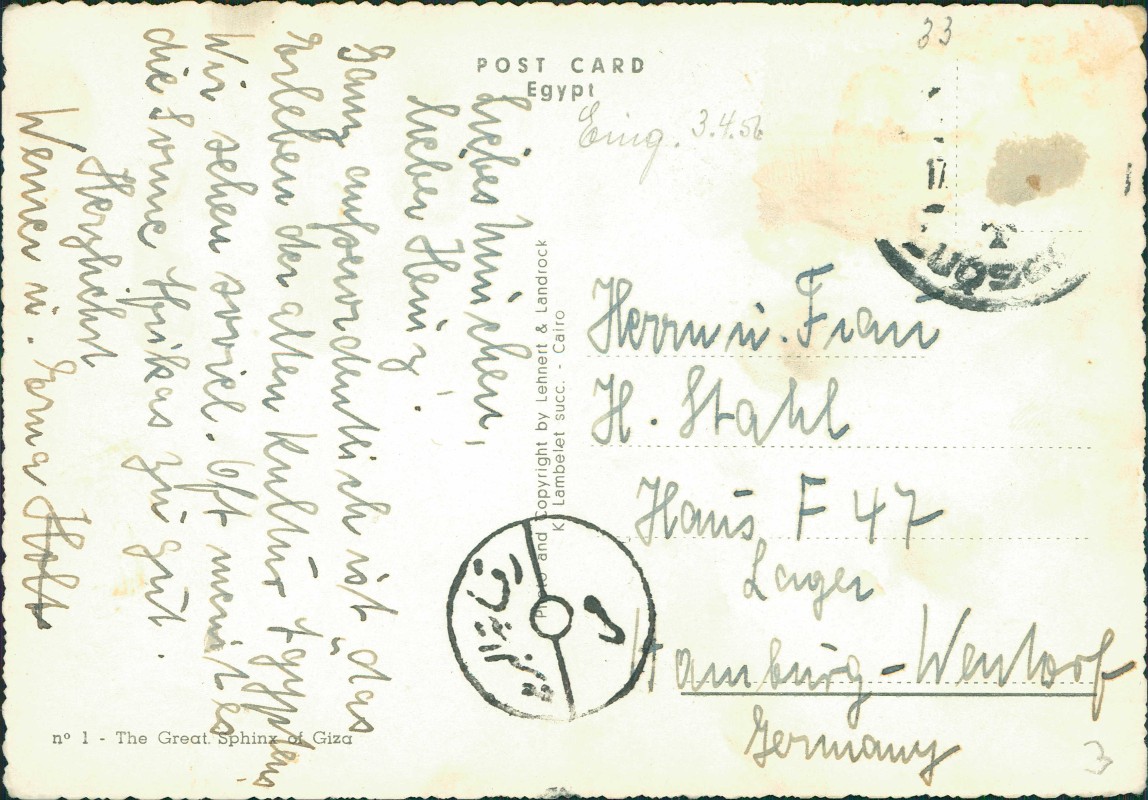 POST CARD
Egypt
Eing. 3.4.56
33
17
Liebes Minichen,
lieber Heinz,
Ganz außerordentlich ist das
Erleben der alten Kultur Ägyptens
Wir sehen soviel. Oft meint es
die Sonne Afrikas zu gut.
Herzlichst
Werner u. Erna Holt
and Copyright by Lehnert & Landrock
K. Lambelet succ. - Cairo
Herrn u. Frau
H. Stahl
Haus F 47
Lager
Hamburg-Wentorf
Germany
nº 1 - The Great Sphinx of Giza
3